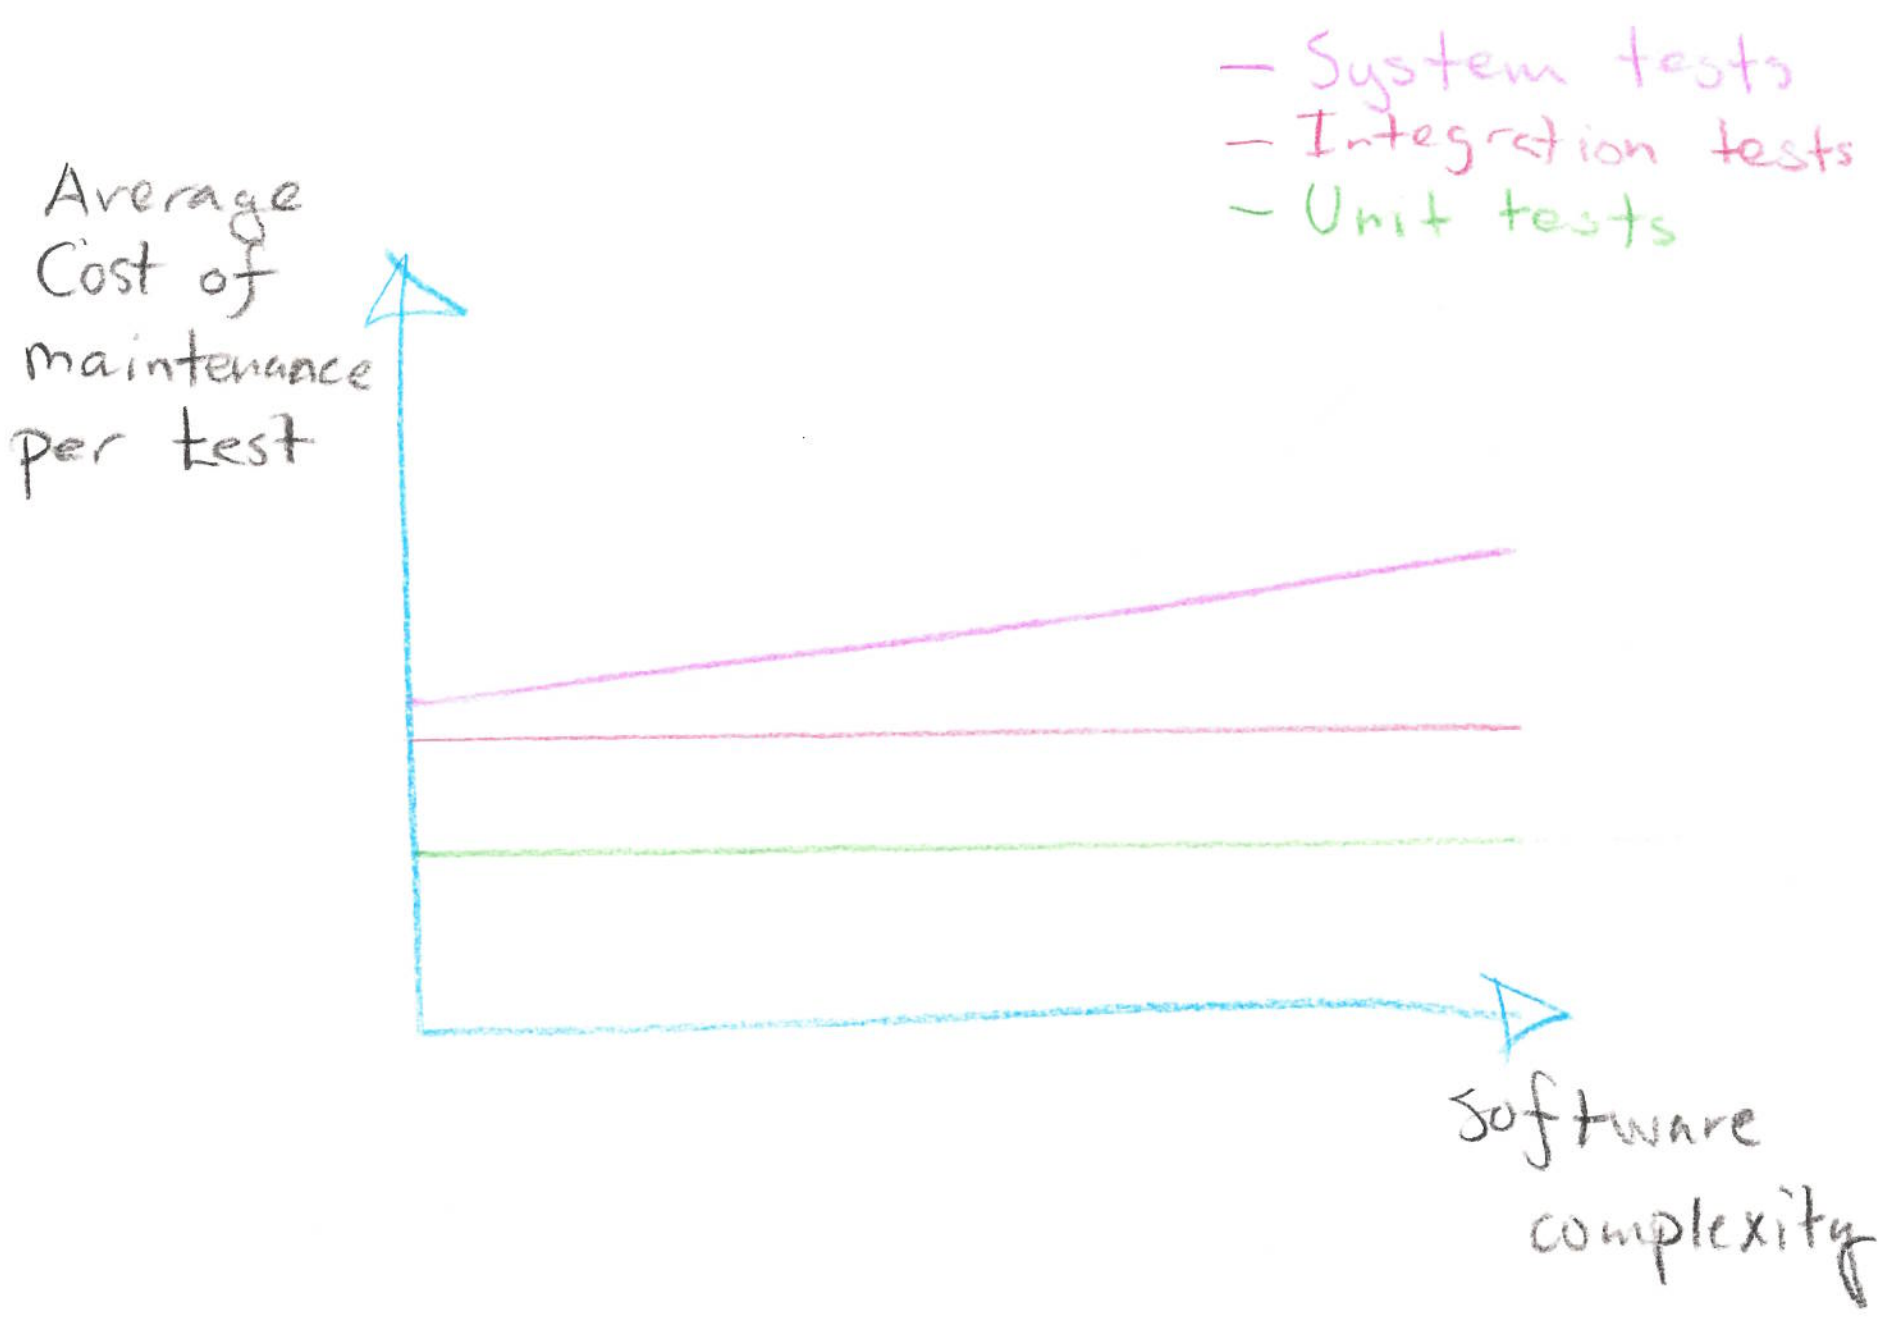 — System tests
— Integration tests
— Unit tests
Average
Cost of
maintenance
per test
Software
complexity